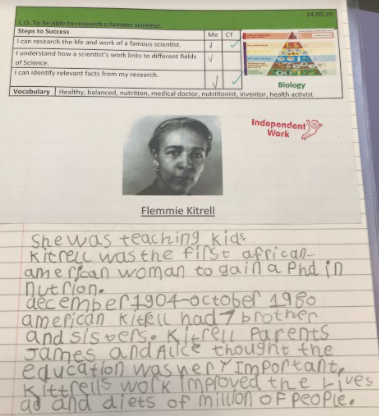 14.09.20
L.O. To be able to research a famous scientist.
Steps to Success Me CT
I can research the life and work of a famous scientist.
I understand how a scientist's work links to different fields of Science.
I can identify relevant facts from my research.
Biology
Vocabulary Healthy, balanced, nutrition, medical doctor, nutritionist, inventor, health activist
Independent
Work
Flemmie Kitrell
She was teaching kids
Kitrell was the first african-
american woman to gain a Phd in
nutrion.
december 1904-october 1980
american kitell had 7 brother
and sisters. Kitrell parents
James and Alice thought the
education was very important.
Kittrells work improved the lives
ad and diets of millon of people.